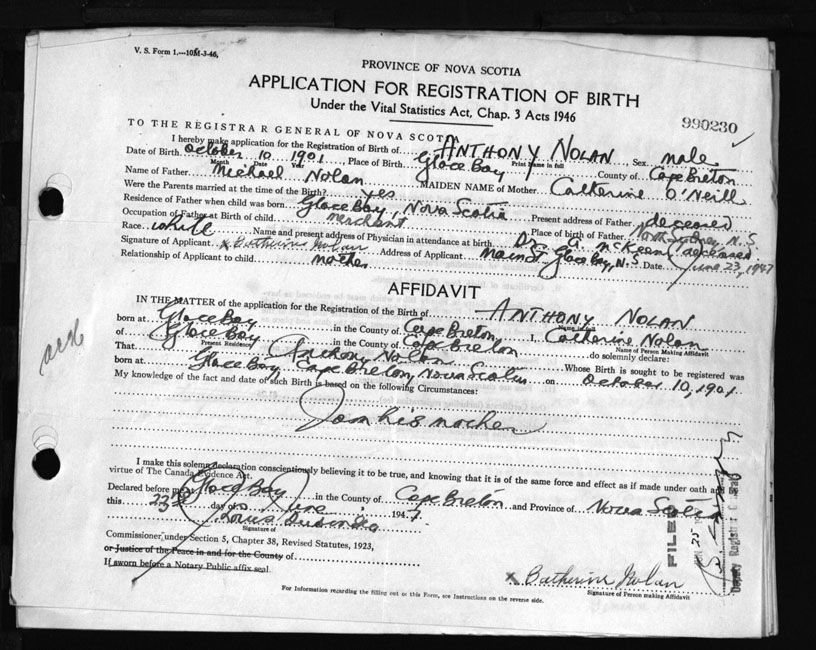 V. S. Form 1.—10M-3-46.
PROVINCE OF NOVA SCOTIA
APPLICATION FOR REGISTRATION OF BIRTH
Under the Vital Statistics Act, Chap. 3 Acts 1946
990230
TO THE REGISTRAR GENERAL OF NOVA SCOTIA
I hereby make application for the Registration of Birth of ANTHONY NOLAN Sex male
Print Name in full
Date of Birth October 10 1901 Place of Birth Glace Bay County of Cape Breton
Month Date Year
Name of Father Michael Nolan MAIDEN NAME of Mother Catherine O'Neill
Were the Parents married at the time of the Birth? yes
Residence of Father when child was born Glace Bay, Nova Scotia Present address of Father deceased
Occupation of Father at Birth of child merchant Place of birth of Father N.S.
Race white Name and present address of Physician in attendance at birth Dr. McKeen, deceased
Signature of Applicant x Catherine Nolan Address of Applicant Main St. Glace Bay, N.S. Date June 23, 1947
Relationship of Applicant to child mother
AFFIDAVIT
IN THE MATTER of the application for the Registration of the Birth of ANTHONY NOLAN
Name in full
born at Glace Bay in the County of Cape Breton I, Catherine Nolan
Name of Person Making Affidavit
of Glace Bay in the County of Cape Breton do solemnly declare:
Present Residency
That Anthony Nolan Whose Birth is sought to be registered was
born at Glace Bay Cape Breton, Nova Scotia on October 10, 1901.
My knowledge of the fact and date of such Birth is based on the following Circumstances:
I am his mother
I make this solemn declaration conscientiously believing it to be true, and knowing that it is of the same force and effect as if made under oath and by
virtue of The Canada Evidence Act.
Declared before me at Glace Bay in the County of Cape Breton and Province of Nova Scotia
this 23rd day of June 1947
Signature of
Commissioner, under Section 5, Chapter 38, Revised Statutes, 1923,
or Justice of the Peace in and for the County of
If sworn before a Notary Public affix seal
x Catherine Nolan
Signature of Person making Affidavit
For Information regarding the filling out of this Form, see Instructions on the reverse side.
FILED
JUN 25
Deputy Registrar General